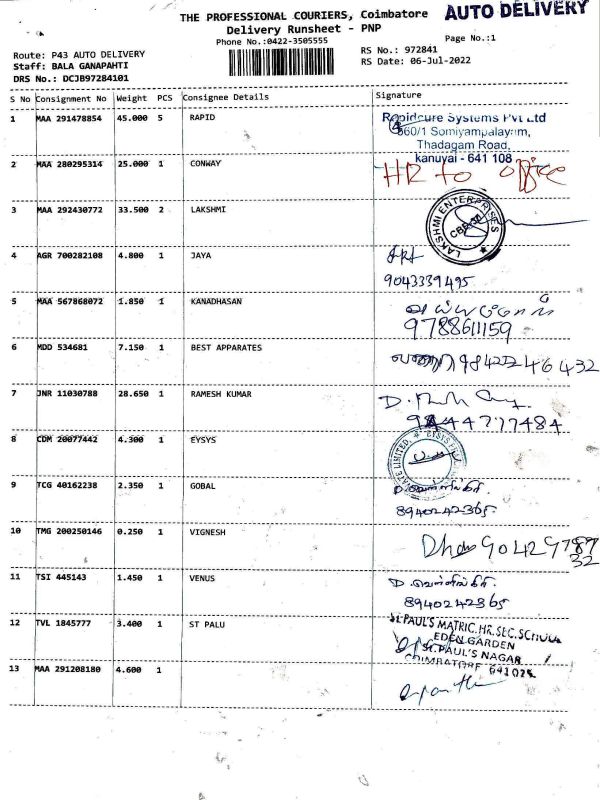 AUTO DELIVERY
THE PROFESSIONAL COURIERS, Coimbatore
Delivery Runsheet - PNP
Phone No.:0422-3505555
Page No.:1
Route: P43 AUTO DELIVERY
Staff: BALA GANAPAHTI
DRS No.: DCJB97284101
RS No.: 972841
RS Date: 06-Jul-2022
S No Consignment No Weight PCS Consignee Details Signature
1 MAA 291478854 45.000 5 RAPID
Rapidcure Systems Pvt Ltd
660/1 Somiyampalayam,
Thadagam Road,
kanuvai - 641 108
2 MAA 280295314 25.000 1 CONWAY HR to office
3 MAA 292430772 33.500 2 LAKSHMI
LAKSHMI ENTERPRISES
CBE-30
4 AGR 700282108 4.800 1 JAYA
9043339495
5 MAA 567868072 1.850 1 KANADHASAN
9788611159
6 MDD 534681 7.150 1 BEST APPARATES
7 JNR 11030788 28.650 1 RAMESH KUMAR
8 CDM 20077442 4.300 1 EYSYS
9 TCG 40162238 2.350 1 GOBAL
8940242365
10 TMG 200250146 0.250 1 VIGNESH
11 TSI 445143 1.450 1 VENUS
8940242365
12 TVL 1845777 3.400 1 ST PALU
ST.PAUL'S MATRIC.HR.SEC.SCHOOL
EDEN GARDEN
ST.PAUL'S NAGAR
COIMBATORE 641025
13 MAA 291208180 4.600 1